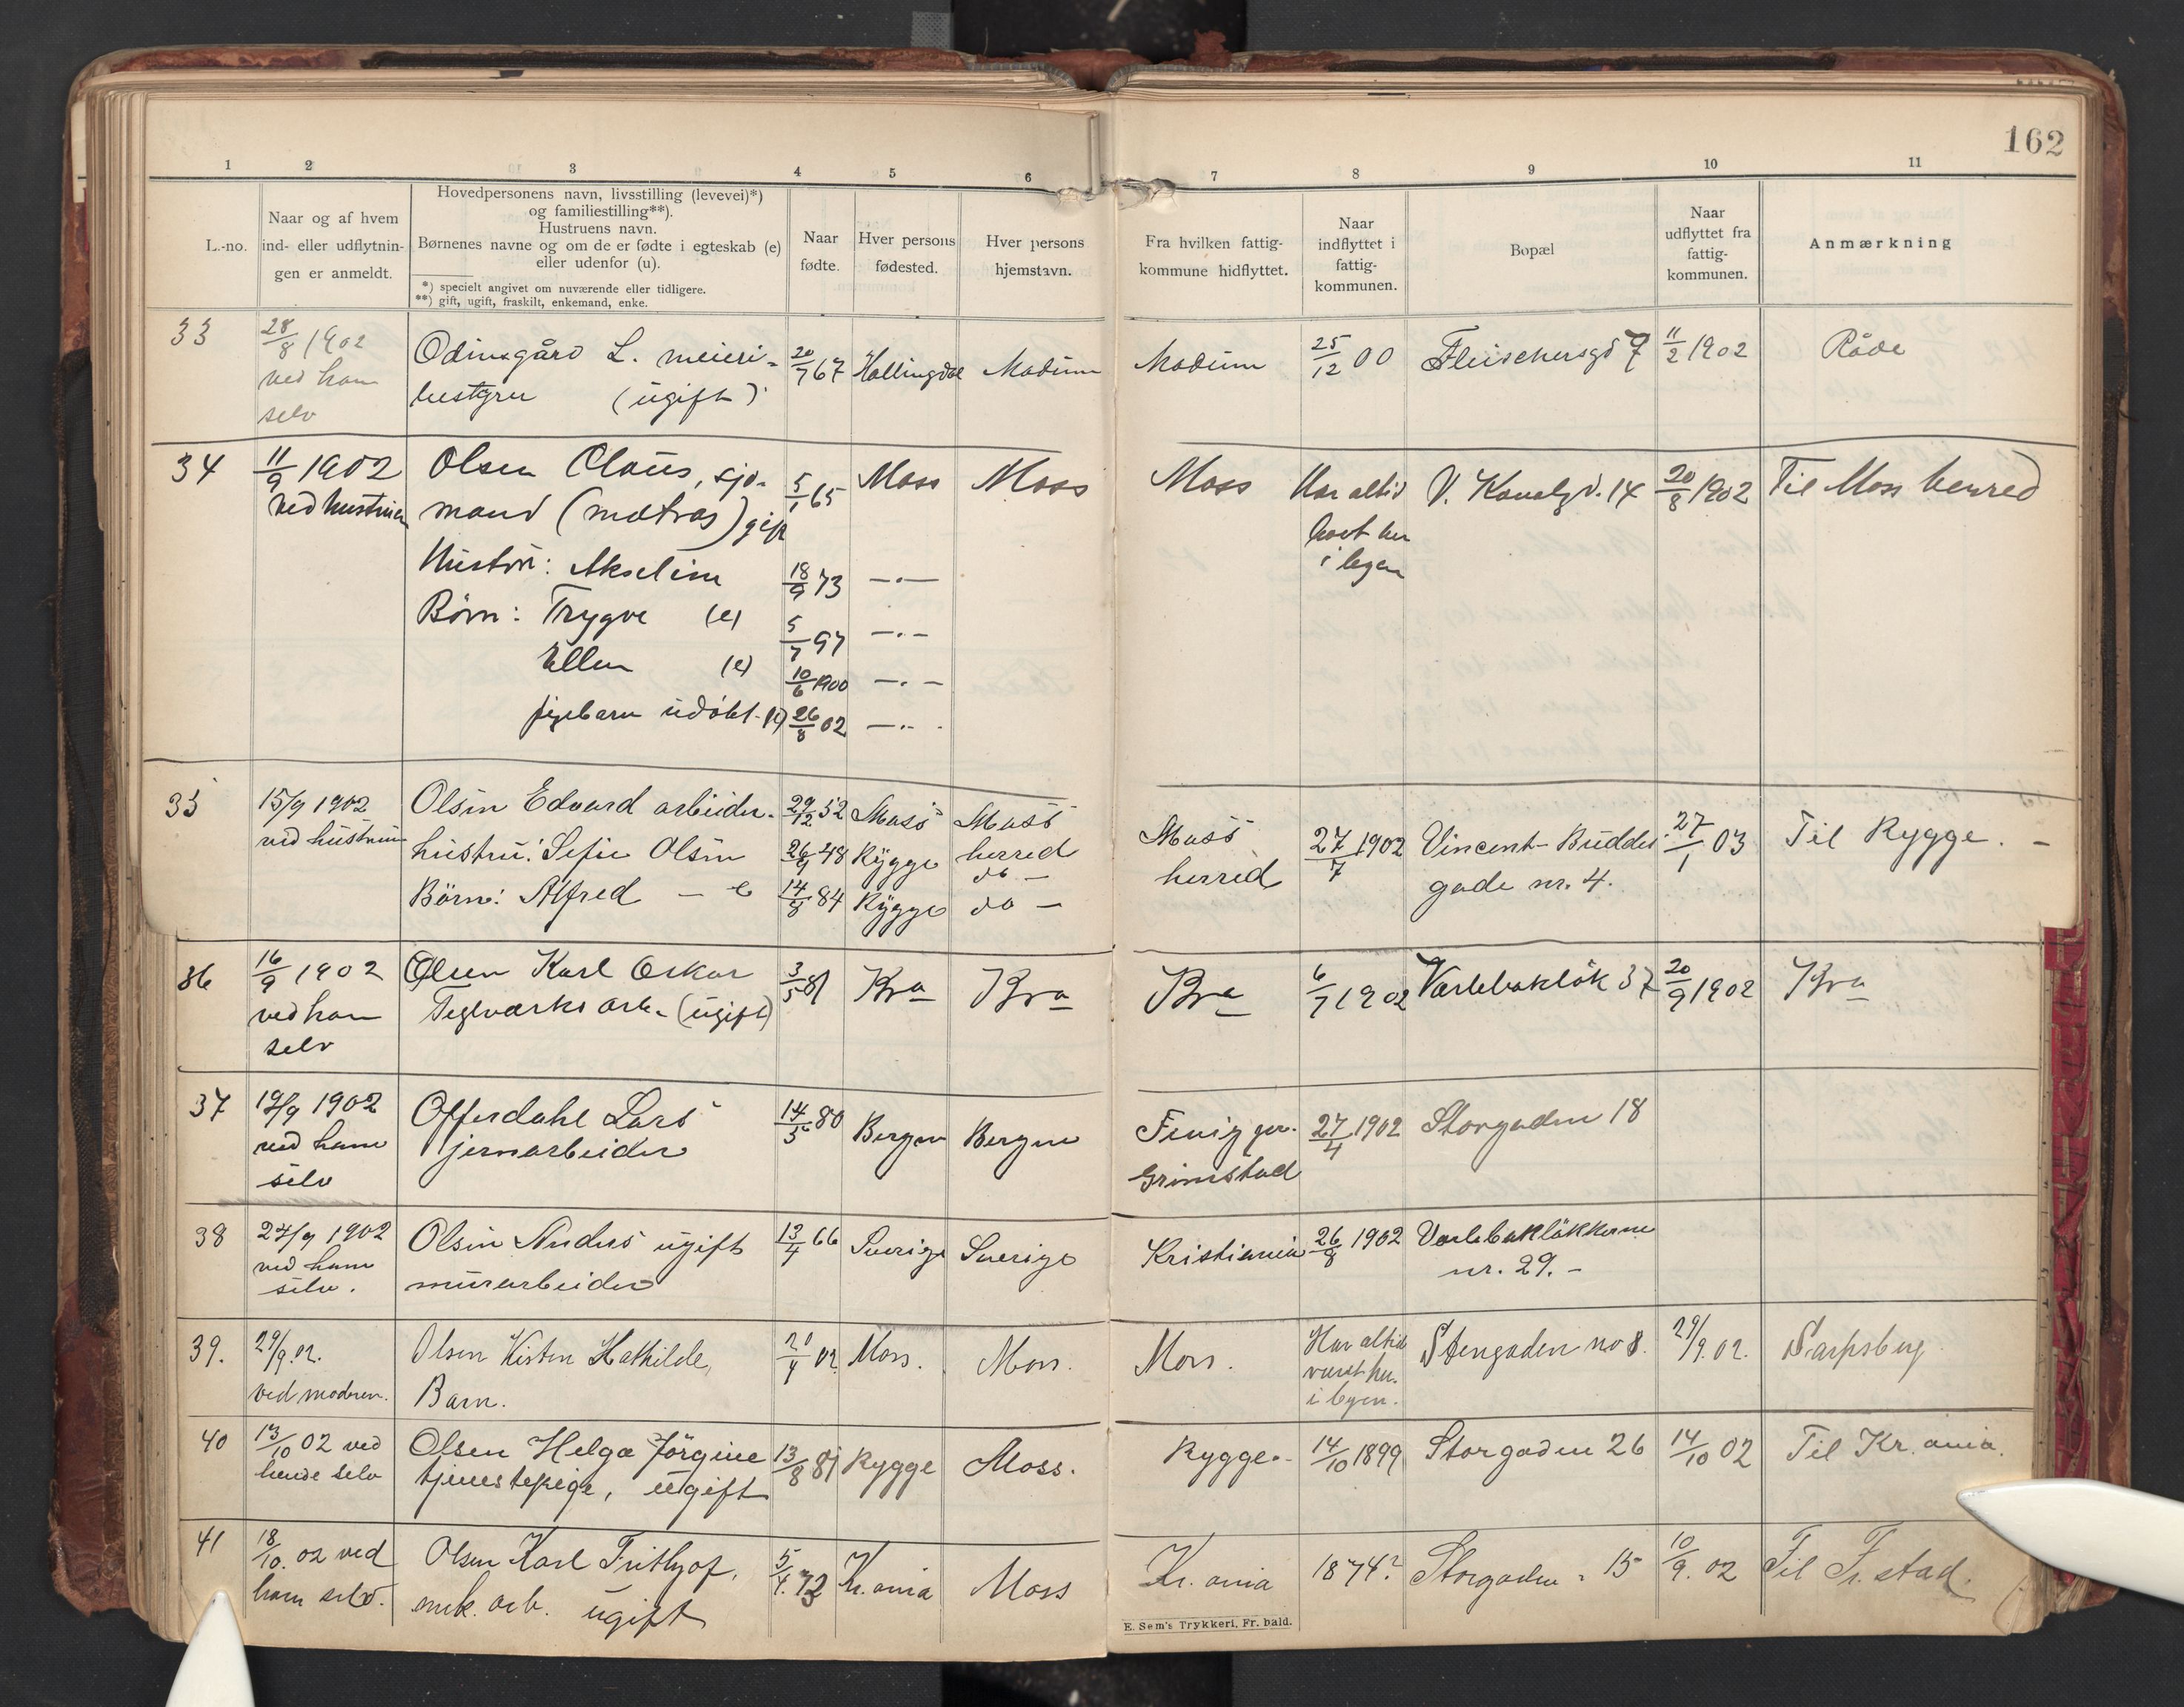 162
1 2 3 4 5 6 7 8 9 10 11
L.-no.
Naar og af hvem
ind- eller udflytnin-
gen er anmeldt.
Hovedpersonens navn, livsstilling (levevei)*)
og familiestilling**).
Hustruens navn.
Børnenes navne og om de er fødte i egteskab (e)
eller udenfor (u).
*) specielt angivet om nuværende eller tidligere.
**) gift, ugift, fraskilt, enkemand, enke.
Naar
fødte.
Hver persons
fødested.
Hver persons
hjemstavn.
Fra hvilken fattig-
kommune hidflyttet.
Naar
indflyttet i
fattig-
kommunen.
Bopæl
Naar
udflyttet fra
fattig-
kommunen.
Anmærkning
33
28/8 1902
ved ham
selv
Odinsgård L. meieri-
bestyrer (ugift)
20/7 67
Hallingdal
Modum
Modum
25/12 00
Fleischersgd 7
11/2 1902
Råde
34
11/9 1902
ved hustruen
Olsen Claus, sjø-
mand (matros) gift
Hustru: Akseline
Børn: Trygve (e)
Ellen (e)
pigebarn udøbt (e)
5/1 65
18/9 73
5/7 97
10/6 1900
26/8 02
Moss
—.—
—.—
—.—
—.—
Moss
Moss
Har altid
boet her
i byen
V. Kanalgd. 14
20/8 1902
Til Moss herred
35
15/9 1902
ved hustruen
Olsen Edvard arbeider.
hustru: Sofie Olsen
Børn: Alfred — e
29/12 52
26/9 48
14/8 84
Moss
Rygge
Rygge
Moss
herred
do —
do —
Moss
herred
27/7 1902
Vincent-Buddes
gade nr. 4.
27/1 03
Til Rygge. —
36
16/9 1902
ved ham
selv
Olsen Karl Oskar
Teglværksarb. (ugift)
3/5 81
Kra
Kra
Kra
6/7 1902
Varlebakløk 37
20/9 1902
Kra
37
19/9 1902
ved ham
selv
Offerdahl Lars
jernarbeider
14/5 80
Bergen
Bergen
Grimstad
27/4 1902
Storgaden 18
38
24/9 1902
ved ham
selv.
Olsen Anders ugift
murarbeider
13/4 66
Sverige
Sverige
Kristiania
26/8 1902
Varlebakløkkerne
nr. 29. —
39.
29/9.02.
ved moderen.
Olsen Kisten Mathilde,
Barn.
Moss.
Moss.
Moss.
Har altid
været her
i byen.
Stengaden no 8.
29/9.02.
Sarpsborg
40
13/10 02 ved
hende selv
Olsen Helga Jørgine
tjenestepige, ugift
13/8 81
Rygge
Moss.
Rygge.-
14/10 1899
Storgaden 26
14/10 02
Til Kr.ania.
41
18/10. 02 ved
ham selv.
Olsen Karl Frithjof,
mek. arb. ugift
5/4. 72
Kr.ania
Moss
Kr.ania
1874?
Storgaden 15
10/9. 02
Til Fr.stad.
E. Sem's Trykkeri, Fr. hald.